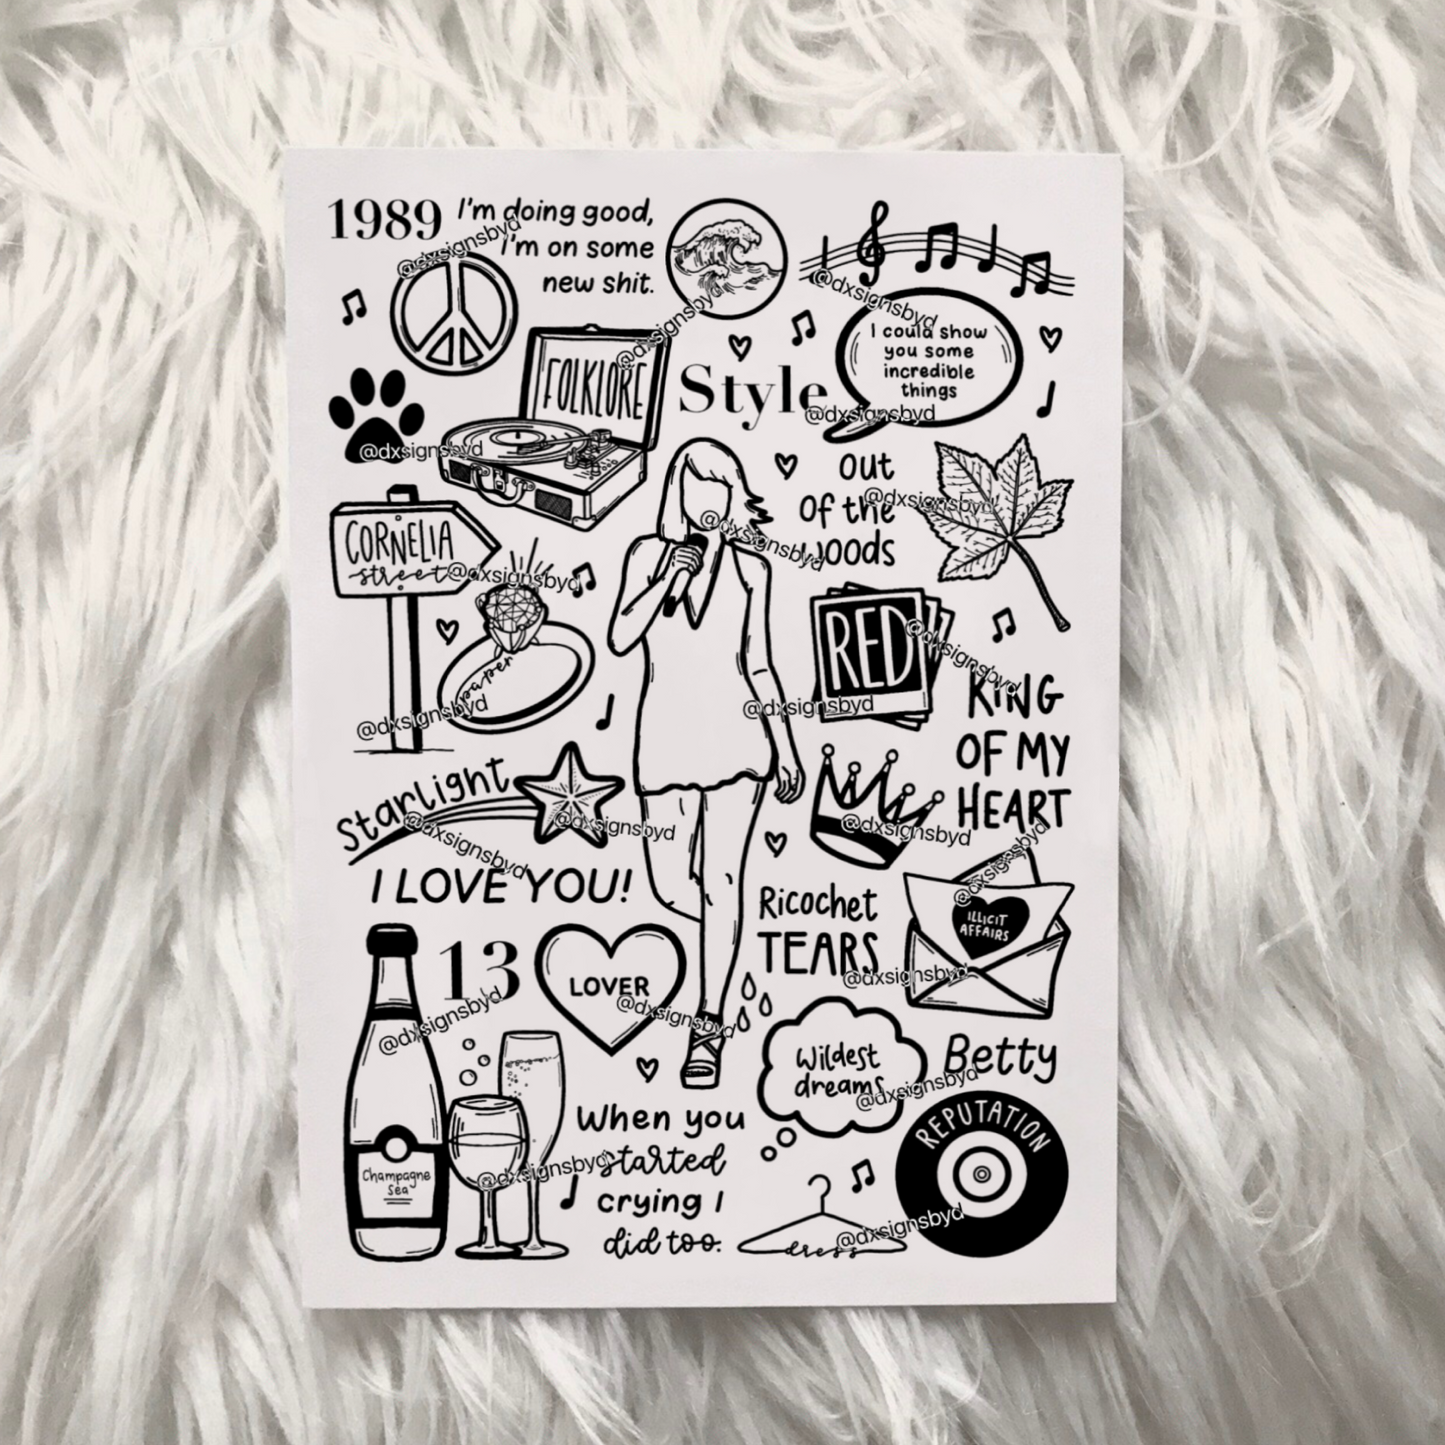 1989
I'm doing good,
I'm on some
new shit.
@dxsignsbyd
@dxsignsbyd
@dxsignsbyd
I could show
you some
incredible
things
FOLKLORE
Style
@dxsignsbyd
@dxsignsbyd
out
of the
woods
@dxsignsbyd
@dxsignsbyd
CORNELIA
street
@dxsignsbyd
paper
@dxsignsbyd
RED
@dxsignsbyd
@dxsignsbyd
KING
OF MY
HEART
Starlight
@dxsignsbyd
@dxsignsbyd
@dxsignsbyd
I LOVE YOU!
Ricochet
TEARS
@dxsignsbyd
@dxsignsbyd
ILLICIT
AFFAIRS
13
@dxsignsbyd
LOVER
@dxsignsbyd
Wildest
dreams
@dxsignsbyd
Betty
REPUTATION
@dxsignsbyd
Champagne
Sea
@dxsignsbyd
When you
started
crying I
did too.
dress